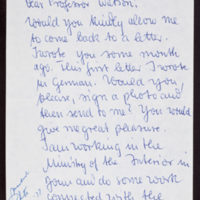 Dear Professor Watson,
Would you kindly allow me
to come back to a letter.
I wrote you some month
ago. This first letter I wrote
in German. Would you,
please, sign a photo and
then send to me? You would
give me great pleasure.
I am working in the
Ministry of the Interior in
Bonn and do some work
connected with the